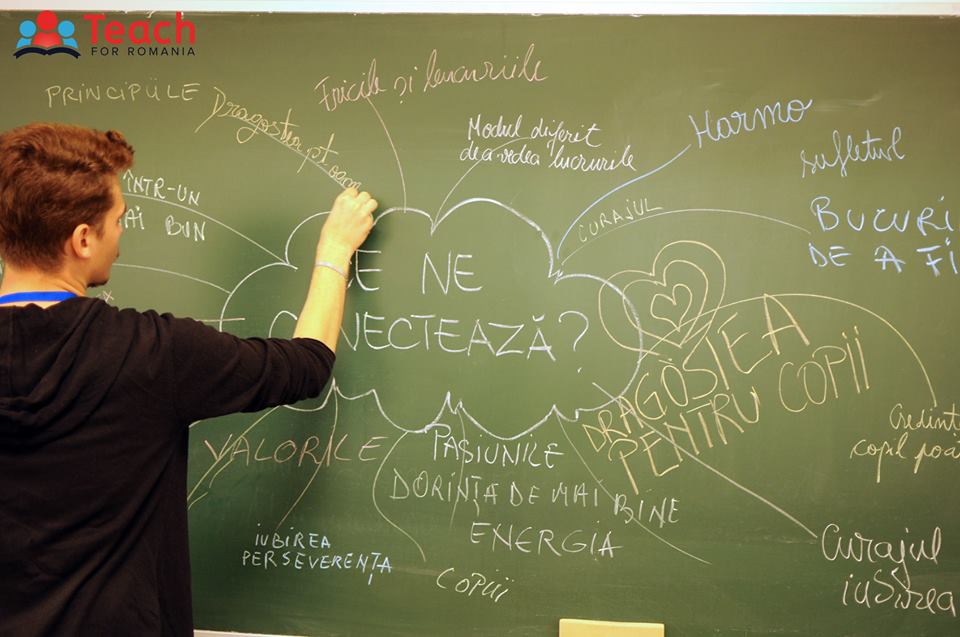 Teach
FOR ROMANIA
PRINCIPIILE
Dragostea pt. oam
Fricile și lucrurile
Modul diferit
de a vedea lucrurile
Harmo
sufletul
ÎNTR-UN
AI BUN
CURAJUL
BUCURI
DE A FI
CE NE
C NECTEAZĂ?
DRAGOSTEA
PENTRU COPII
Credinț
copil poa
VALORILE
PASIUNILE
DORINȚA DE MAI BINE
ENERGIA
IUBIREA
PERSEVERENȚA
COPIII
Curajul
iubirea